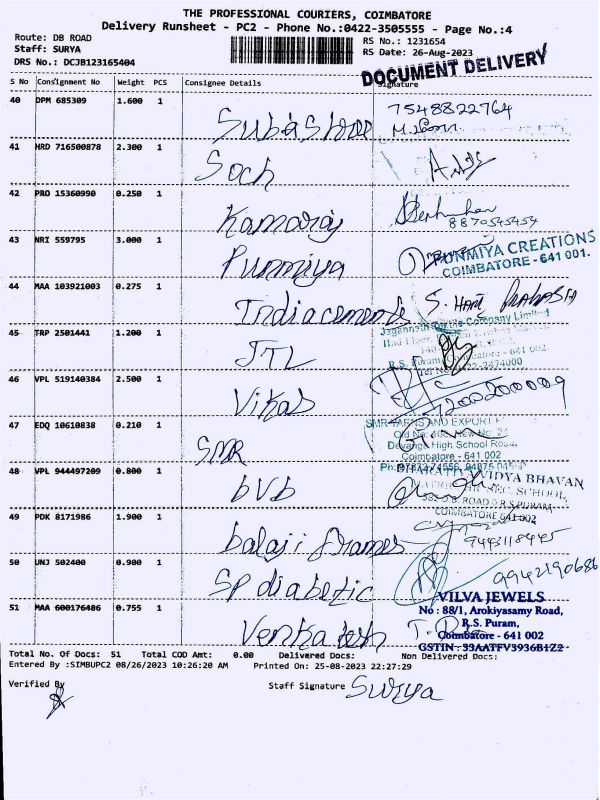 THE PROFESSIONAL COURIERS, COIMBATORE
Delivery Runsheet - PC2 - Phone No.:0422-3505555 - Page No.:4
Route: DB ROAD
Staff: SURYA
DRS No.: DCJB123165404
RS No.: 1231654
RS Date: 26-Aug-2023
DOCUMENT DELIVERY
S No Consignment No Weight PCS Consignee Details Signature
40 DPM 685309 1.600 1 7548822764
41 HRD 716500878 2.300 1 Soch
42 PRO 15360990 0.250 1 Kamaraj
8870545454
43 NRI 559795 3.000 1 Punmiya
PUNMIYA CREATIONS
COIMBATORE - 641 001.
44 MAA 103921003 0.275 1 Indiacements S. HARI PRAKASH
Company Limited
45 TRP 2501441 1.200 1 JTL
R.S. Puram, Coimbatore - 641 002
46 VPL 519140384 2.500 1 Vikas
47 EDQ 10610838 0.210 1 SMR
SMR YARNS AND EXPORT
Devanga High School Road,
Coimbatore - 641 002
48 VPL 944497209 0.800 1 bvb
BHARATIYA VIDYA BHAVAN
SEC. SCHOOL,
D.B. ROAD R.S PURAM,
COIMBATORE 641 002
49 PDK 8171986 1.900 1 balaji frames
9443118445
50 UNJ 502400 0.900 1 SP diabetic 9942190686
51 MAA 600176486 0.755 1 Venkatesh
VILVA JEWELS
No : 88/1, Arokiyasamy Road,
R.S. Puram,
Coimbatore - 641 002
GSTIN : 33AATFV3936B1Z2
Total No. Of Docs: 51 Total COD Amt: 0.00 Delivered Docs: Non Delivered Docs:
Entered By :SIMBUPC2 08/26/2023 10:26:20 AM Printed On: 25-08-2023 22:27:29
Verified By Staff Signature Surya